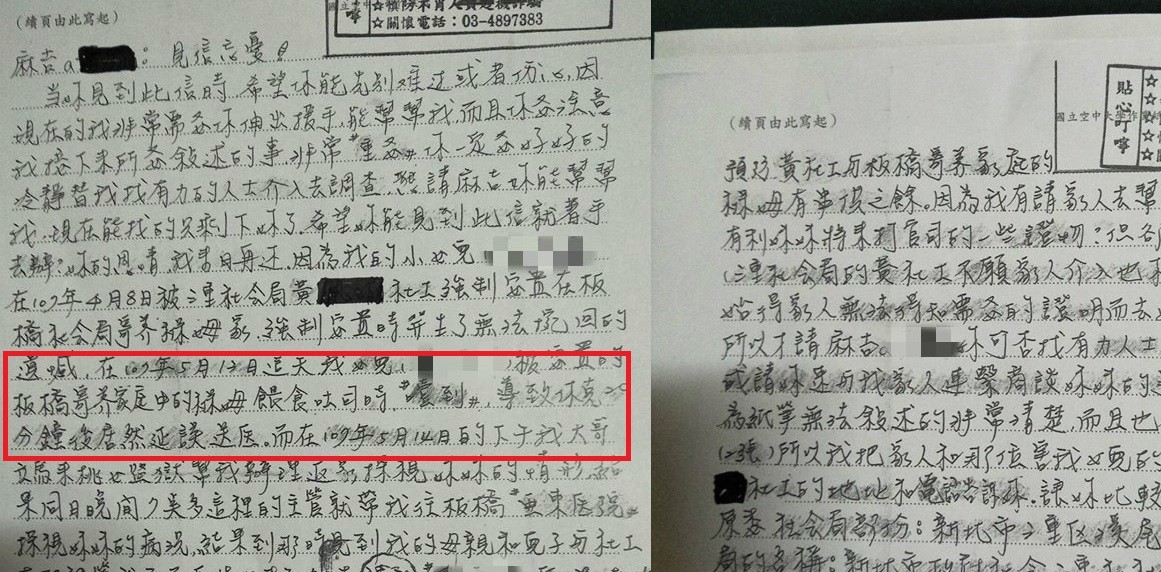 (續頁由此寫起)
☆慎防不肖人員趁機詐騙
☆關懷電話：03-4897383
麻吉a：見信忘憂！
當妳見到此信時，希望妳能先別難过或者伤心，因
現在的我非常需要妳伸出援手，能幫幫我，而且妳要注意
我接下來所要敍述的事非常"重要"妳一定要好好的
冷靜替我找有力的人士介入去調查，懇請麻吉妳能幫幫
我，現在能找的只剩下妳了，希望妳能見到此信就著手
去辦，妳的恩情我來日再还，因為我的小女兒
在109年4月8日被三重社会局黃 社工強制安置在板
橋社会局寄养保母家，強制安置時發生了無法挽回的
遺憾，在109年5月12日這天我女兒， 被安置的
板橋寄养家庭中的保母餵食吐司時"噎到"，導致休克
分鐘後居然延誤送医。而在109年5月14日的下午我大哥
來桃女監獄幫我辦理返家探視妹妹的情形結
果同日晚間7矣多這裡的主管就帶我往板橋"亞東医院"
探視妹妹的病况，結果到那時見到我的母親和兒子与社工
(續頁由此寫起)
國立空中大學
貼心叮嚀
預防黃社工与板橋寄养家庭的
保母有串接之餘。因為我有請家人去幫
有利妹妹將來打官司的一些證物？但
(三重社会局的黃社工不願家人介入也
始得家人無法得知需要的證明而去
所以才請麻吉a 妳可否找有力人士
或請妳速与我家人連繫商談妹妹的
為紙筆無法敍述的非常清楚，而且也
(2張)所以我把家人和那位害我女兒的
社工的地址和電話告訴妳，讓妳比較
原委社会局部份：新北市三重区
局的名稱：新北市政府社会